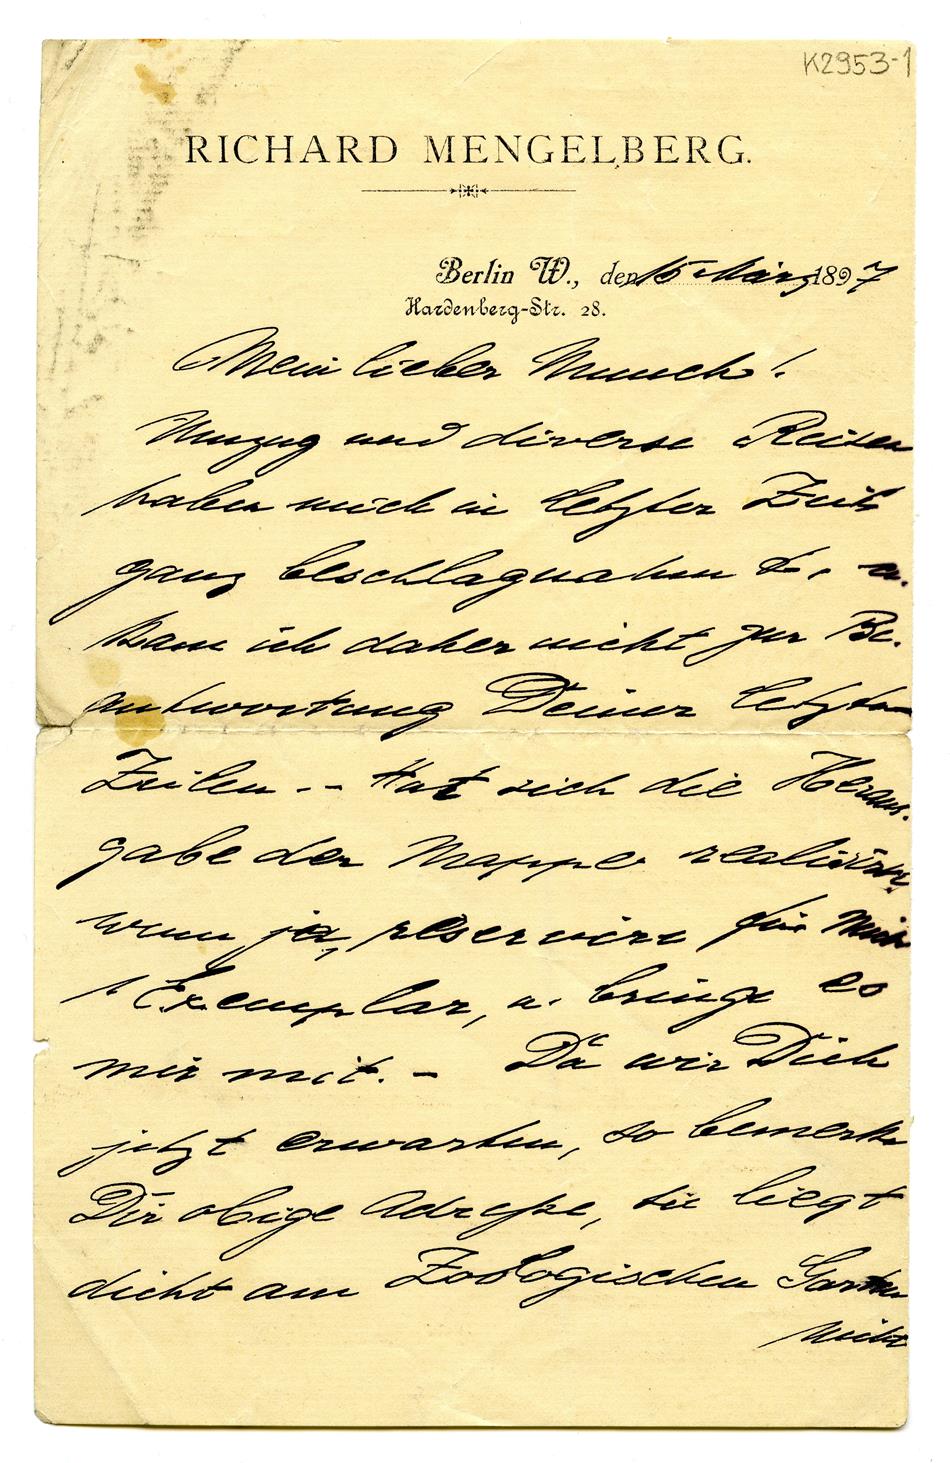 K2953-1
RICHARD MENGELBERG.
Berlin W., den 15 März 1897
Hardenberg-Str. 28.
Mein lieber Munch!
Umzug und diverse Reisen
haben mich in letzter Zeit
ganz beschlagnahmt, u.
kam ich daher nicht zur Be-
antwortung Deiner letzten
Zeilen. – Hat sich die Heraus-
gabe der Mappe realisirt,
wenn ja, reservire für mich
1 Exemplar, u. bringe es
mir mit. – Da wir Dich
jetzt erwarten, so bemerke
Dir obige Adresse, sie liegt
dicht am Zoologischen Garten